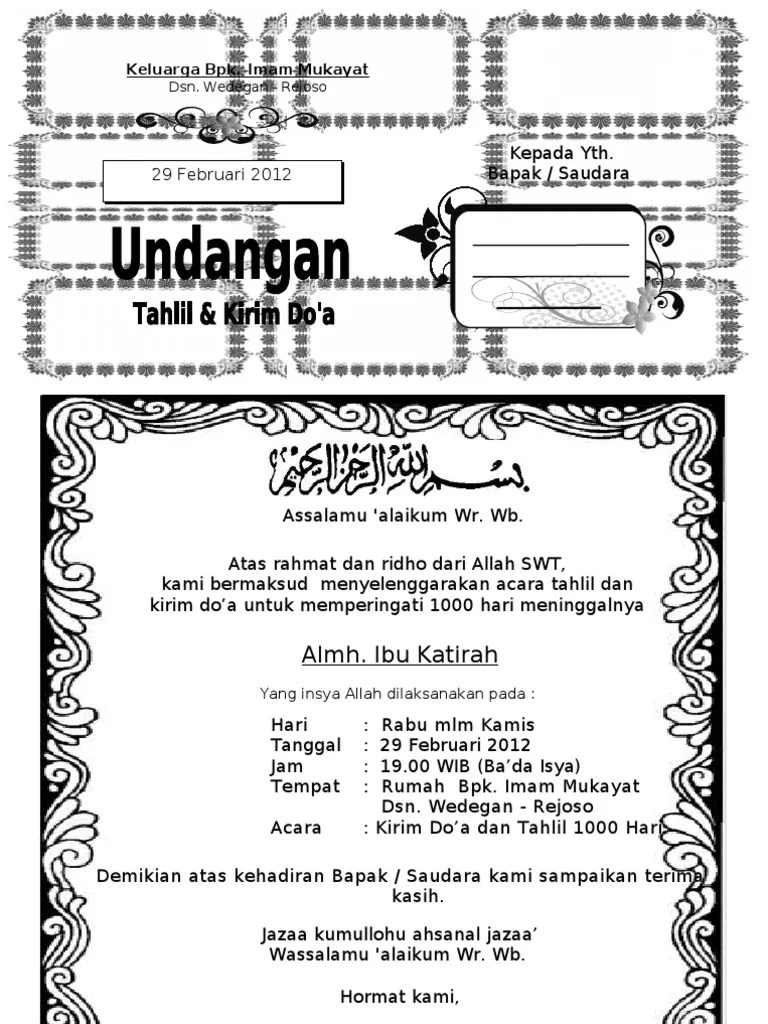 Keluarga Bpk. Imam Mukayat
Dsn. Wedegan - Rejoso
29 Februari 2012
Undangan
Tahlil & Kirim Do'a
Kepada Yth.
Bapak / Saudara
بسم الله الرحمن الرحيم
Assalamu 'alaikum Wr. Wb.
Atas rahmat dan ridho dari Allah SWT,
kami bermaksud menyelenggarakan acara tahlil dan
kirim do’a untuk memperingati 1000 hari meninggalnya
Almh. Ibu Katirah
Yang insya Allah dilaksanakan pada :
Hari : Rabu mlm Kamis
Tanggal : 29 Februari 2012
Jam : 19.00 WIB (Ba’da Isya)
Tempat : Rumah Bpk. Imam Mukayat
Dsn. Wedegan - Rejoso
Acara : Kirim Do’a dan Tahlil 1000 Hari
Demikian atas kehadiran Bapak / Saudara kami sampaikan terima
kasih.
Jazaa kumullohu ahsanal jazaa’
Wassalamu 'alaikum Wr. Wb.
Hormat kami,